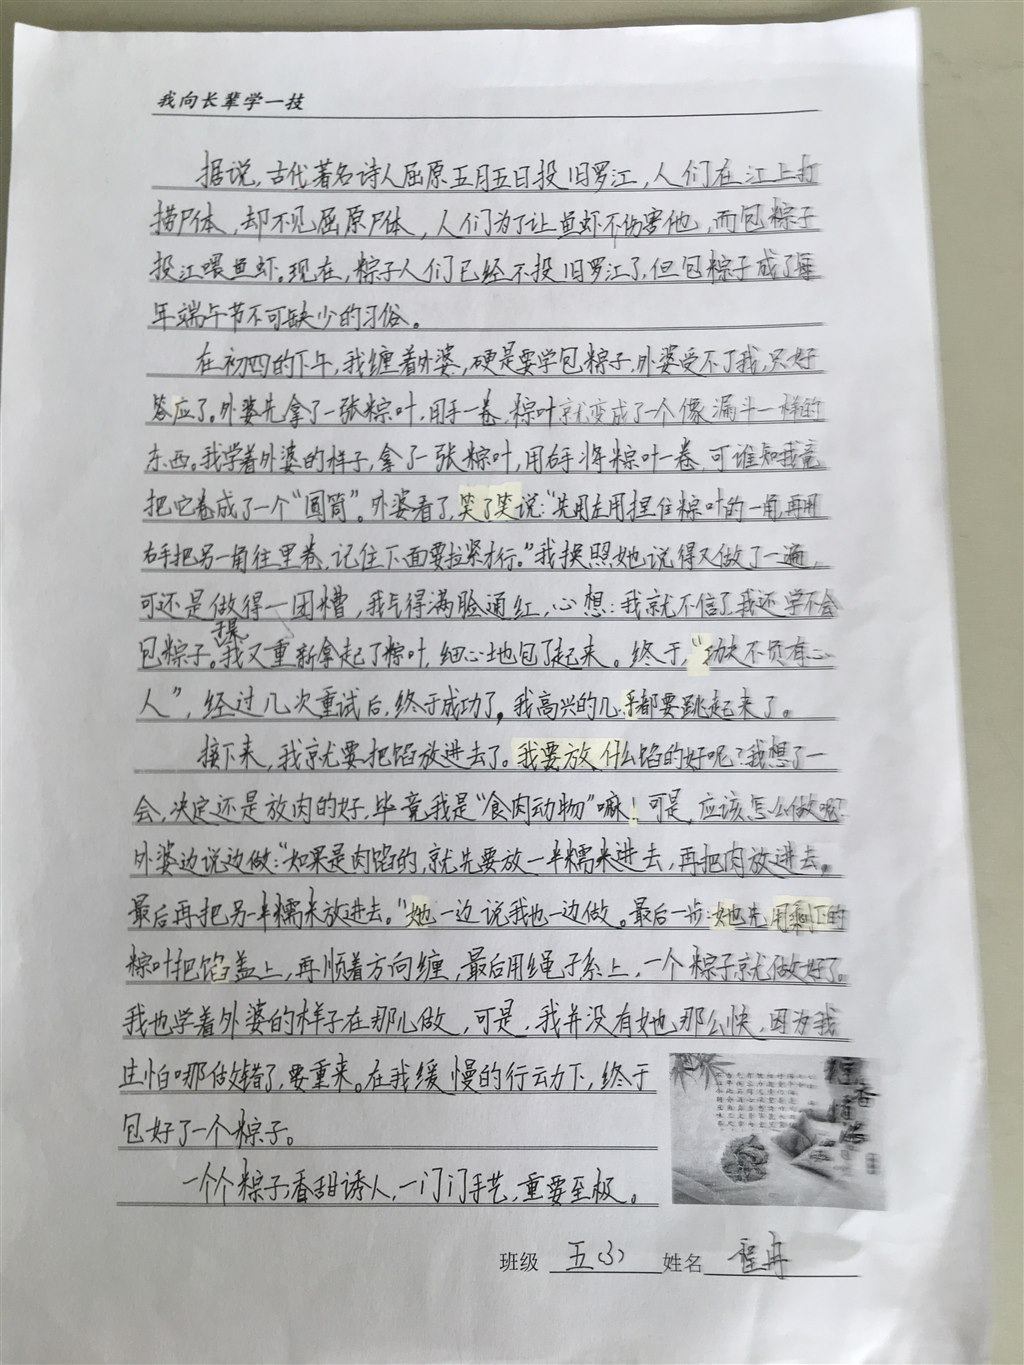 我向长辈学一技
据说，古代著名诗人屈原五月五日投旧罗江，人们在江上打
捞尸体，却不见屈原尸体，人们为了让鱼虾不伤害他，而包粽子
投江喂鱼虾。现在，粽子人们已经不投旧罗江了，但包粽子成了每
年端午节不可缺少的习俗。
在初四的下午，我缠着外婆，硬是要学包粽子，外婆受不了我，只好
答应了。外婆先拿了一张粽叶，用手一卷，粽叶就变成了一个像漏斗一样的
东西。我学着外婆的样子，拿了一张粽叶，用右手将粽叶一卷，可谁知我竟
把它卷成了一个“圆筒”。外婆看了，笑了笑说：“先用左用捏住粽叶的一角，再用
右手把另一角往里卷，记住下面要拉紧才行。”我按照她说得又做了一遍，
可还是做得一团糟，我气得满脸通红，心想：我就不信了，我还学不会
包粽子。于是，我又重新拿起了粽叶，细心地包了起来。终于，“功夫不负有心
人”，经过几次重试后，终于成功了，我高兴的几乎都要跳起来了。
接下来，我就要把馅放进去了。我要放什么馅的好呢？我想了一
会，决定还是放肉的好，毕竟我是“食肉动物”嘛！可是，应该怎么做呢？
外婆边说边做：“如果是肉馅的，就先要放一半糯米进去，再把肉放进去。
最后再把另一半糯米放进去。”她一边说我也一边做。最后一步：她先用剩下的
粽叶把馅盖上，再顺着方向缠，最后用绳子系上，一个粽子就做好了。
我也学着外婆的样子在那儿做，可是，我并没有她那么快，因为我
生怕哪做错了，要重来。在我缓慢的行动下，终于
包好了一个粽子。
一个个粽子，香甜诱人，一门门手艺，重要至极。
班级 五（3） 姓名 程冉